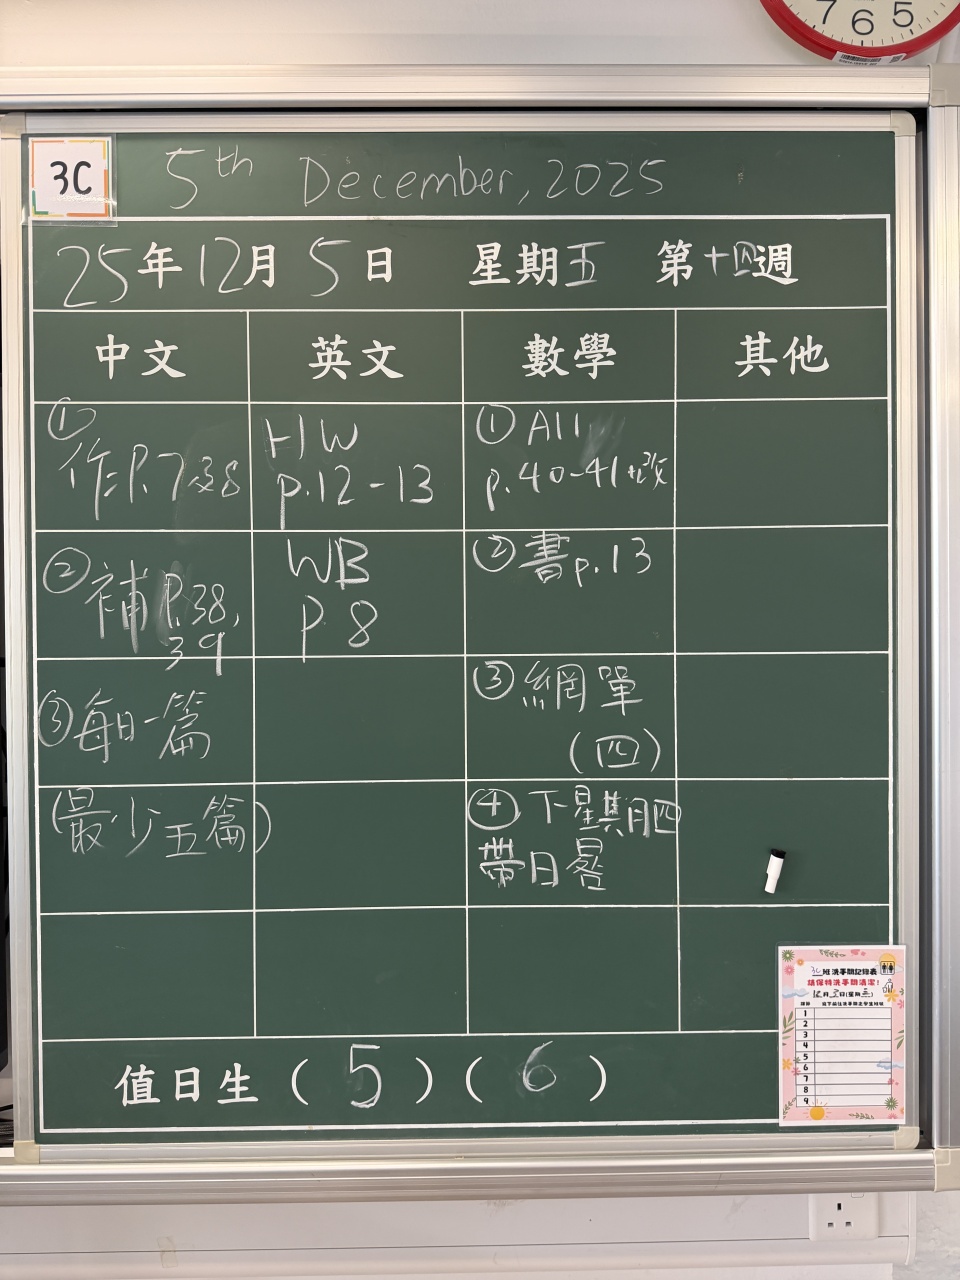 7 6 5
3C
5th December, 2025
25年12月5日 星期五 第十四週
中文 英文 數學 其他
①
作P.7,38
HW
p.12-13
① A11
p.40-41+改
② 補 P.38,
39
WB
P.8
② 書p.13
③ 每日一篇
③ 網單
(四)
(最少五篇)
④ 下星期四
帶日晷
值日生 ( 5 ) ( 6 )
3C班洗手間記錄表
請保持洗手間清潔！
12月5日(星期五)
1
2
3
4
5
6
7
8
9